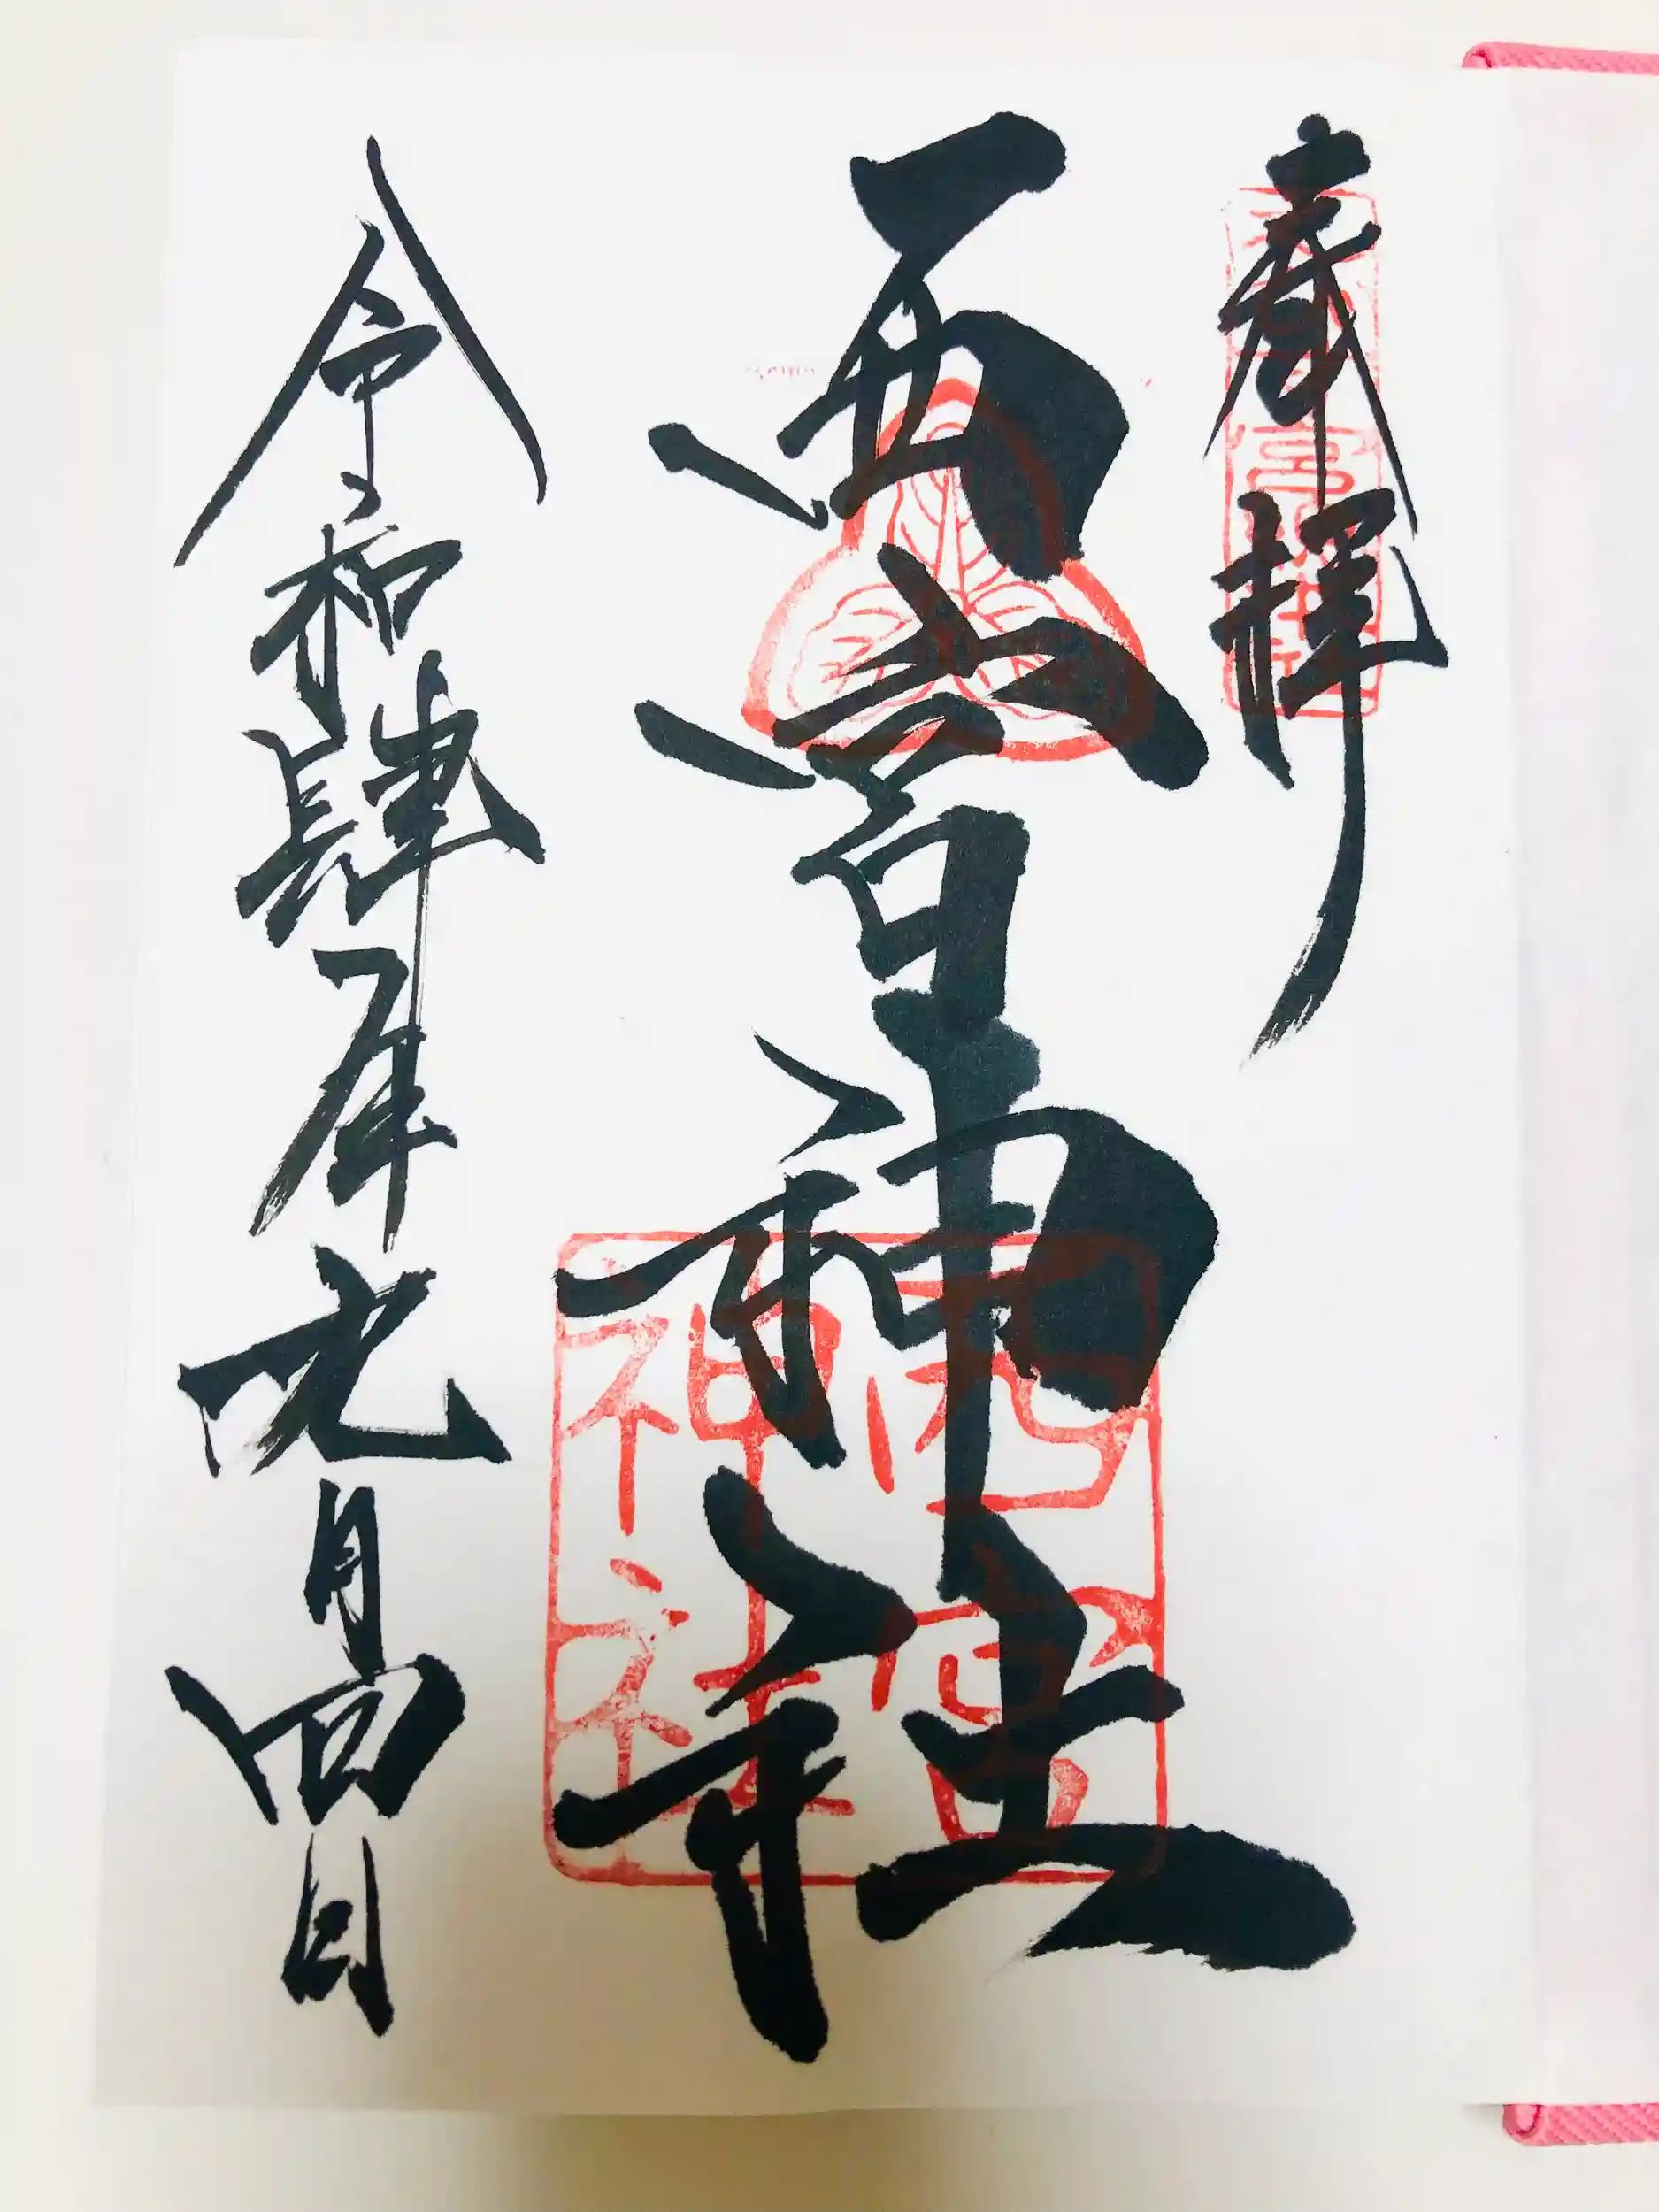 奉拝
西宮神社
令和肆年
月四日
神社